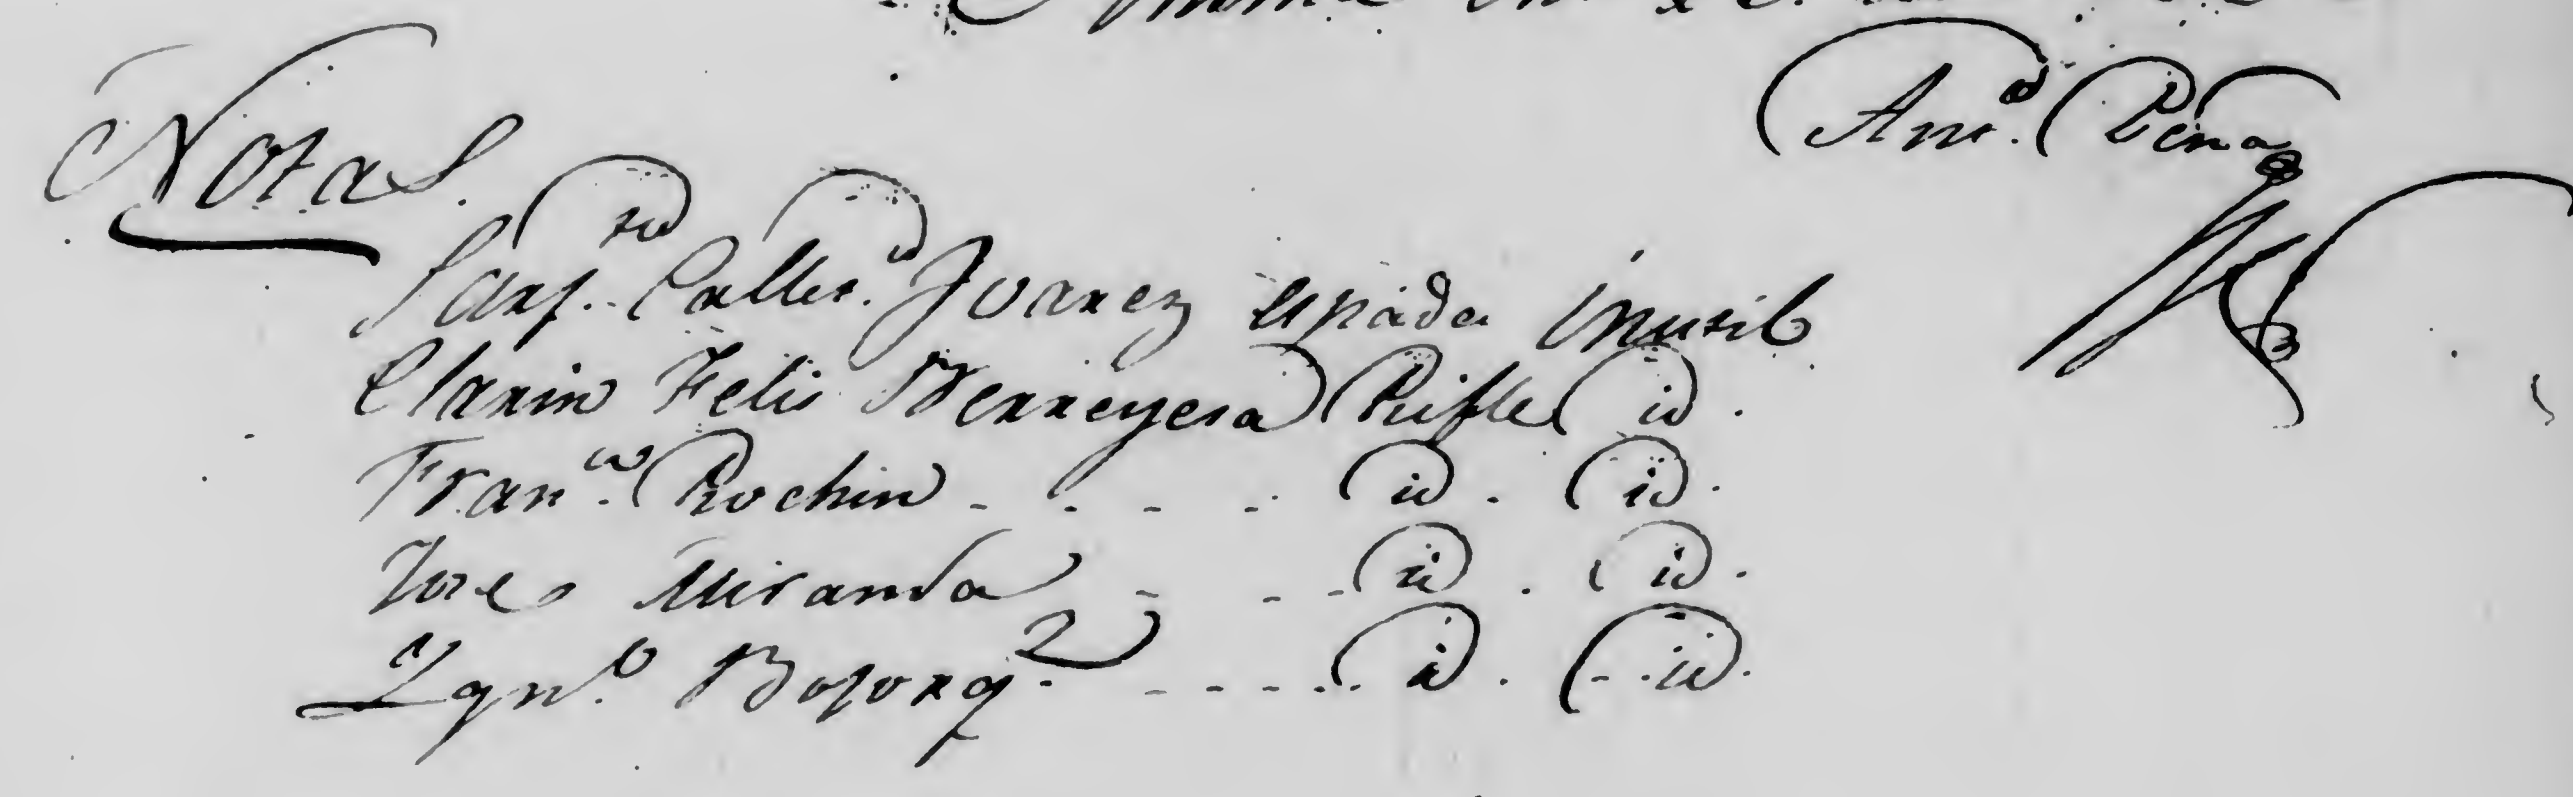 Antº. Peña
Notas.
Sargto. Calletº. Juarez espada inutil
Clarin Felis Berreyesa Rifle id.
Franco. Rochin - . - . id. id.
Jose Miranda - - - id. id.
Ygnº. Bojorq.z - - - - . . id. id.